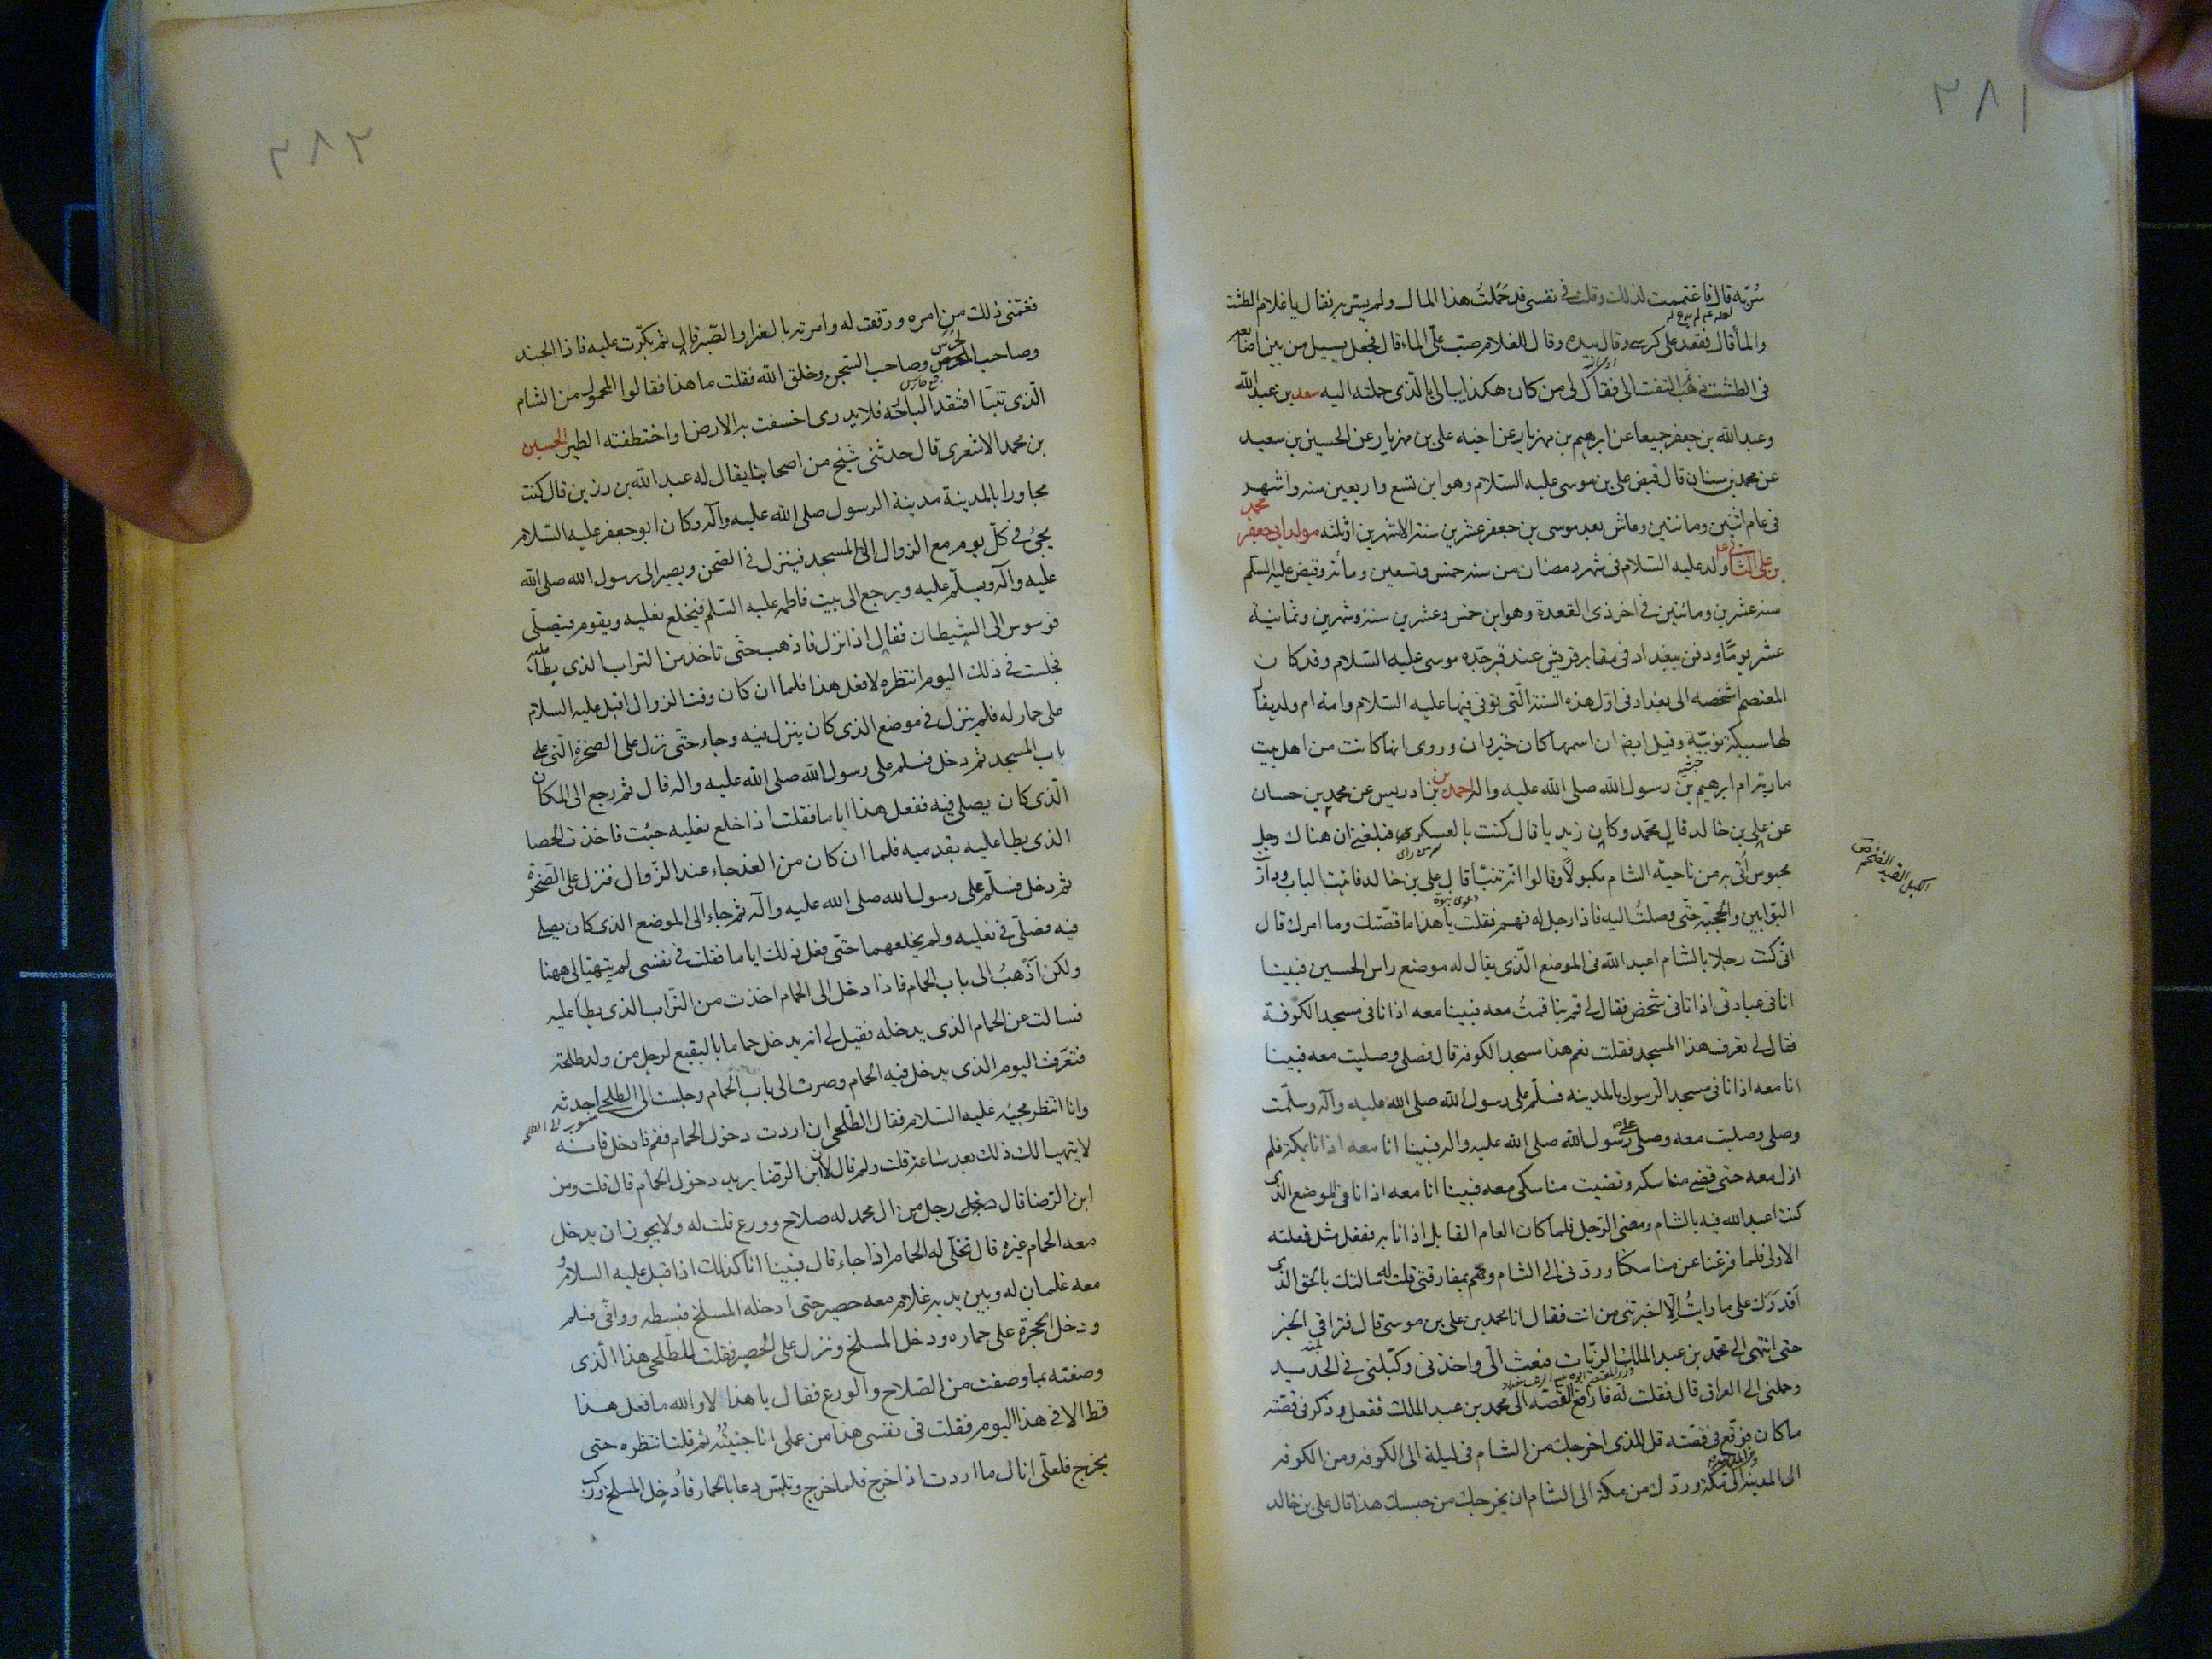 ٣٨١
سُرّ به قال فاغتممت لذلك وقلت في نفسي قد حَمَلتُ هذا المال ولم يسر به فقال يا غلام الطشت
والماء قال فقعد على كرسي وقال بيده وقال للغلام صبّ علىّ الماء قال فجعل يسيل من بين اصابعه
في الطشت ذهب ثم التفت الى فقال لى من كان هكذا يبالى بالذى حملته اليه سعد بن عبد الله
وعبد الله بن جعفر جميعا عن ابرهيم بن مهزيار عن اخيه على بن مهزيار عن الحسين بن سعيد
عن محمد بن سنان قال قبض على بن موسى عليه السلام وهو ابن تسع واربعين سنه واشهر
فى عام اثنين ومائتين وعاش بعد موسى بن جعفر عشرين سنة الا شهرين او ثلثه مولد ابى جعفر محمد
بن على الثانى ولد عليه السلام فى شهر رمضان من سنه خمس وتسعين ومائه وقبض عليه السلم
سنه عشرين ومائتين فى اخر ذى القعدة وهو ابن خمس وعشرين سنة وشهرين وثمانية
عشر يومًا ودفن ببغداد فى مقابر قريش عند قبر جدّه موسى عليه السلام وقد كان
المعتصم اشخصه الى بغداد فى اوّل هذه السنة الّتى توفى فيها عليه السلام وامه ام ولد يقال
لها سبيكة نوبيّة وقيل ايضا ان اسمها كان خيزران وروى انها كانت من اهل بيت
مارية ام ابرهيم بن رسول الله صلى الله عليه واله احمد بن ادريس عن محمد بن حسان
عن على بن خالد قال محمد وكان زيديا قال كنت بالعسكر فبلغنى ان هناك رجل
محبوس أتى به من ناحية الشام مكبولًا وقالوا انّه تنبّا قال على بن خالد فاتيت الباب وداريت
البوّابين والحجبة حتّى وصلتُ اليه فاذا رجل له فهم فقلت يا هذا ما قصّتك وما امرك قال
انّى كنت رجلا بالشام اعبد الله فى الموضع الّذى يقال له موضع راس الحسين فبينا
انا فى عبادتى اذ اتانى شخص فقال لى قم بنا فقمتُ معه فبينا معه اذ انا فى مسجد الكوفة
فقال لى تعرف هذا المسجد فقلت نعم هذا مسجد الكوفة قال فصلى وصليت معه فبينا
انا معه اذ انا فى مسجد الرسول بالمدينه فسلّم على رسول الله صلى الله عليه وآله وسلّمت
وصلى وصليت معه وصلى على رسول الله صلى الله عليه واله فبينا انا معه اذ انا بمكة فلم
ازل معه حتى قضى مناسكه وقضيت مناسكى معه فبينا انا معه اذ انا فى الموضع الذى
كنت اعبد الله فيه بالشام ومضى الرّجل فلما كان العام القابل اذ انا به ففعل مثل فعلته
الاولى فلما فرغنا عن مناسكنا وردّنى الى الشام وهم بمفارقتى قلت له سالتك بالحق الذى
اقدرَكَ على ما رايتُ الّا اخبرتنى من انت فقال انا محمد بن على بن موسى قال فتراقى الخبر
حتى انتهى الى محمد بن عبد الملك الزيّات فبعث الىّ واخذنى وكبّلنى فى الحديد
وحملنى الى العراق قال فقلت له فارفع القصّة الى محمد بن عبد الملك ففعل وذكر فى قصّته
ما كان فوقّع فى قصّته قل للذى اخرجك من الشام فى ليلة الى الكوفه ومن الكوفه
الى المدينه الى مكة وردّك من مكة الى الشام ان يخرجك من حبسك هذا قال على بن خالد
٣٨٢
فغمّنى ذلك من امره ورققت له وامرته بالعزاء والصّبر قال ثم بكّرت عليه فاذا الجند
وصاحب الحرس وصاحب السّجن وخلق الله فقلت ما هذا فقالوا المحمول من الشام
الّذى تنبّا افتقد البارحة فلا يدرى اخسفت به الارض او اختطفته الطير الحسين
بن محمد الاشعرى قال حدثنى شيخ من اصحابنا يقال له عبد الله بن رزين قال كنت
مجاورا بالمدينة مدينة الرسول صلى الله عليه وآله وكان ابو جعفر عليه السّلام
يجئ فى كلّ يوم مع الزوال الى المسجد فينزل فى الصّحن ويصير الى رسول الله صلى الله
عليه وآله ويسلّم عليه ويرجع الى بيت فاطمه عليه السّلم فيخلع نعليه ويقوم فيصلّى
فوسوس الىّ الشيطان فقال اذا نزل فاذهب حتّى تاخذ من التراب الذى يطأ عليه
فجلست فى ذلك اليوم انتظره لافعل هذا فلما ان كان وقت الزوال اقبل عليه السلام
على حمار له فلم ينزل فى موضع الذى كان ينزل فيه وجاء حتّى نزل على الصخرة الّتى على
باب المسجد ثم دخل فسلم على رسول الله صلى الله عليه واله قال ثم رجع الى المكان
الّذى كان يصلى فيه ففعل هذا اياما فقلت اذا خلع نعليه جئت فاخذت الحصا
الذى يطا عليه بقدميه فلما ان كان من الغد جاء عند الزّوال فنزل على الصّخرة
ثم دخل فسلّم على رسول الله صلى الله عليه وآله ثم جاء الى الموضع الذى كان يصلى
فيه فصلّى فى نعليه ولم يخلعهما حتّى فعل ذلك اياما فقلت فى نفسى لم يتهيّا لى ههنا
ولكن اذهبُ الى باب الحمام فاذا دخل الى الحمام اخذت من التّراب الذى يطأ عليه
فسالت عن الحمام الذى يدخله فقيل لى انه يدخل حماما بالبقيع لرجل من ولد طلحة
فتعرّفت اليوم الذى يدخل فيه الحمام وصرت الى باب الحمام وجلست الى الطلحى احدثه
وانا انتظر مجيئه عليه السلام فقال الطّلحى ان اردت دخول الحمام فقم فادخل فانه
لا يتهيا لك ذلك بعد ساعة قلت ولم قال لان ابن الرّضا يريد دخول الحمام قال قلت ومن
ابن الرّضا قال رجل من ال محمد له صلاح وورع قلت له ولا يجوز ان يدخل
معه الحمام غيره قال نخلّى له الحمام اذا جاء قال فبينا انا كذلك اذ اقبل عليه السلام و
معه غلمان له وبين يديه غلام معه حصير حتى ادخله المسلخ فبسطه ووافى فسلم
ودخل الحجرة على حماره ودخل المسلخ ونزل على الحصير فقلت للطّلحى هذا الّذى
وصفته بما وصفت من الصّلاح والورع فقال يا هذا لا والله ما فعل هذا
قط الا فى هذا اليوم فقلت فى نفسى هذا من عملى انا جنيتُه ثم قلت انتظره حتى
يخرج فلعلّى انال ما اردت اذا خرج فلما خرج وتلبّس دعا بالحمار فأُدخِل المسلخ وركب